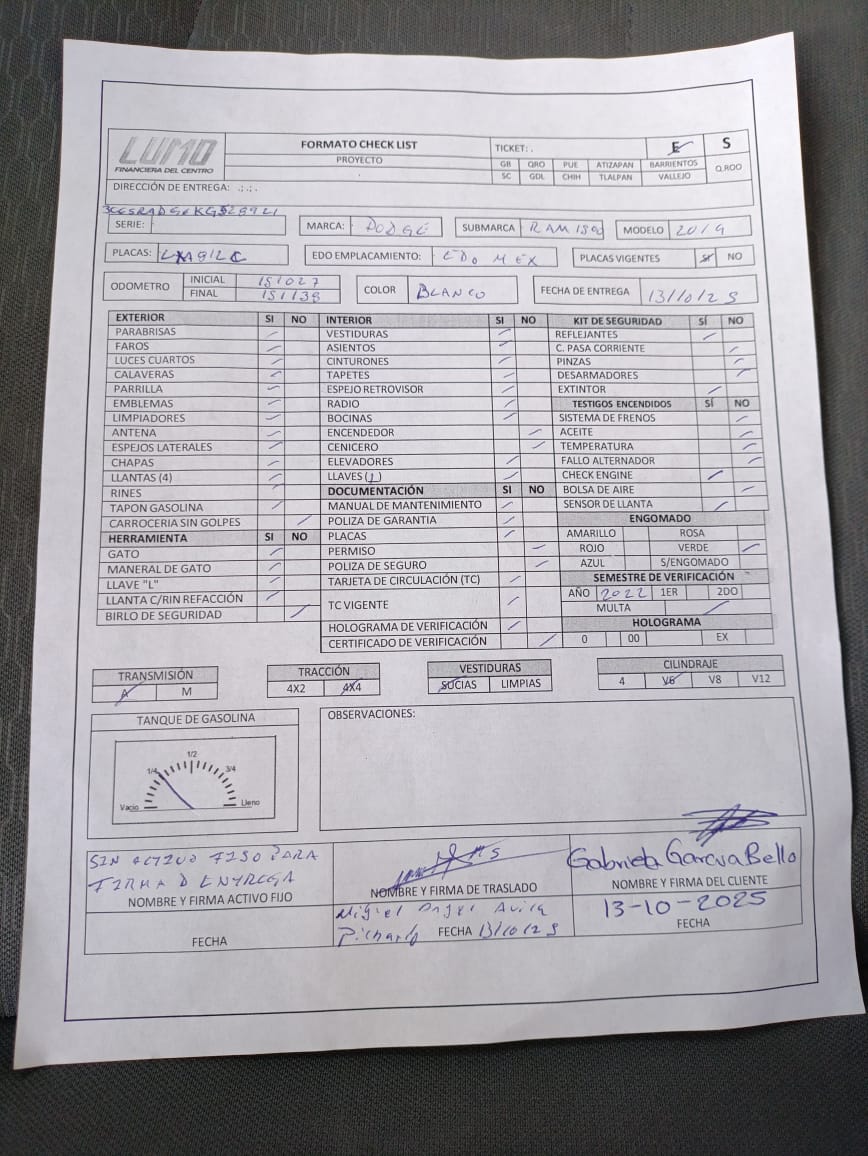 LUMO
FINANCIERA DEL CENTRO
FORMATO CHECK LIST
PROYECTO
TICKET: .
E S
GB QRO PUE ATIZAPAN BARRIENTOS Q.ROO
SC GDL CHIH TLALPAN VALLEJO
DIRECCIÓN DE ENTREGA: .:.:.
SERIE:
MARCA: DODGE
SUBMARCA RAM 1500
MODELO 2019
PLACAS:
EDO EMPLACAMIENTO: EDO MEX
PLACAS VIGENTES SI NO
ODOMETRO INICIAL 151027
FINAL 151139
COLOR BLANCO
FECHA DE ENTREGA 13/10/25
EXTERIOR SI NO
PARABRISAS
FAROS
LUCES CUARTOS
CALAVERAS
PARRILLA
EMBLEMAS
LIMPIADORES
ANTENA
ESPEJOS LATERALES
CHAPAS
LLANTAS (4)
RINES
TAPON GASOLINA
CARROCERIA SIN GOLPES
HERRAMIENTA SI NO
GATO
MANERAL DE GATO
LLAVE "L"
LLANTA C/RIN REFACCIÓN
BIRLO DE SEGURIDAD
INTERIOR SI NO
VESTIDURAS
ASIENTOS
CINTURONES
TAPETES
ESPEJO RETROVISOR
RADIO
BOCINAS
ENCENDEDOR
CENICERO
ELEVADORES
LLAVES (1)
DOCUMENTACIÓN SI NO
MANUAL DE MANTENIMIENTO
POLIZA DE GARANTIA
PLACAS
PERMISO
POLIZA DE SEGURO
TARJETA DE CIRCULACIÓN (TC)
TC VIGENTE
HOLOGRAMA DE VERIFICACIÓN
CERTIFICADO DE VERIFICACIÓN
KIT DE SEGURIDAD SÍ NO
REFLEJANTES
C. PASA CORRIENTE
PINZAS
DESARMADORES
EXTINTOR
TESTIGOS ENCENDIDOS SÍ NO
SISTEMA DE FRENOS
ACEITE
TEMPERATURA
FALLO ALTERNADOR
CHECK ENGINE
BOLSA DE AIRE
SENSOR DE LLANTA
ENGOMADO
AMARILLO ROSA
ROJO VERDE
AZUL S/ENGOMADO
SEMESTRE DE VERIFICACIÓN
AÑO 2022 1ER 2DO
MULTA
HOLOGRAMA
0 00 EX
TRANSMISIÓN
A M
TRACCIÓN
4X2 4X4
VESTIDURAS
SUCIAS LIMPIAS
CILINDRAJE
4 V6 V8 V12
TANQUE DE GASOLINA
Vacio 1/4 1/2 3/4 Lleno
OBSERVACIONES:
SIN ACTIVO FISO PARA
FIRMA D ENTREGA
NOMBRE Y FIRMA ACTIVO FIJO
FECHA
NOMBRE Y FIRMA DE TRASLADO
Miguel Angel Avila
FECHA 13/10/25
Gabriela Garcia Bello
NOMBRE Y FIRMA DEL CLIENTE
13-10-2025
FECHA